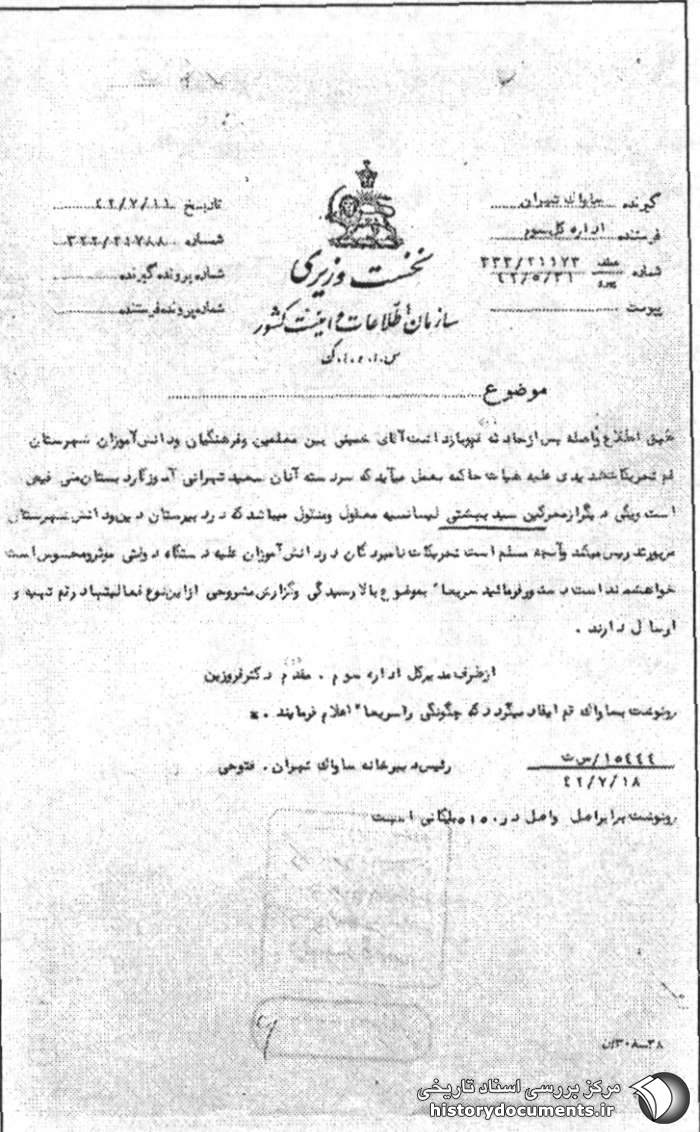 گیرنده ساواك تهران
فرستنده اداره کل سوم
شماره عطف پیرو ۳۳۲/۲۱۱۷۳ ۴۲/۵/۳۱
پیوست
نخست وزیری
سازمان اطلاعات و امنیت کشور
س.ا.و.ا.ك
تاریخ ۴۲/۷/۱۱
شماره ۳۲۲/۲۱۷۸۸
شماره پرونده گیرنده
شماره پرونده فرستنده
موضوع
طبق اطلاع واصله پس از حادثه بازداشت آقای خمینی بین معلمین و فرهنگیان و دانش آموزان شهرستان
قم تحریکات شدیدی علیه هیات حاکمه بعمل میآید که سردسته آنان سعید تهرانی آموزگار دبستان فیض
است ویکی دیگر از محرکین سید بهشتی لیسانسیه معقول ومنقول میباشد که در دبیرستان دین و دانش شهرستان
مزبور تدریس میکند وآنچه مسلم است تحریکات نامبردگان در دانش آموزان علیه دستگاه دولتی موثر ومحسوس است
خواهشمند است دستور فرمائید سریعا" بموضوع بالا رسیدگی وگزارش مشروحی از این نوع فعالیتها در قم تهیه و
ارسال دارند .
از طرف مدیر کل اداره سوم . مقدم دکتر فروزین
رونوشت بساواك قم ایفاد میگردد که چگونگی را سریعا" اعلام فرمایند .
۱۵۴۴۴/س ت
۴۲/۷/۱۸
رئیس دبیرخانه ساواك تهران . فتوحی
رونوشت برابر اصل واصل در ۵۱۰ بایگانی است
مرکز بررسی اسناد تاریخی
historydocuments.ir